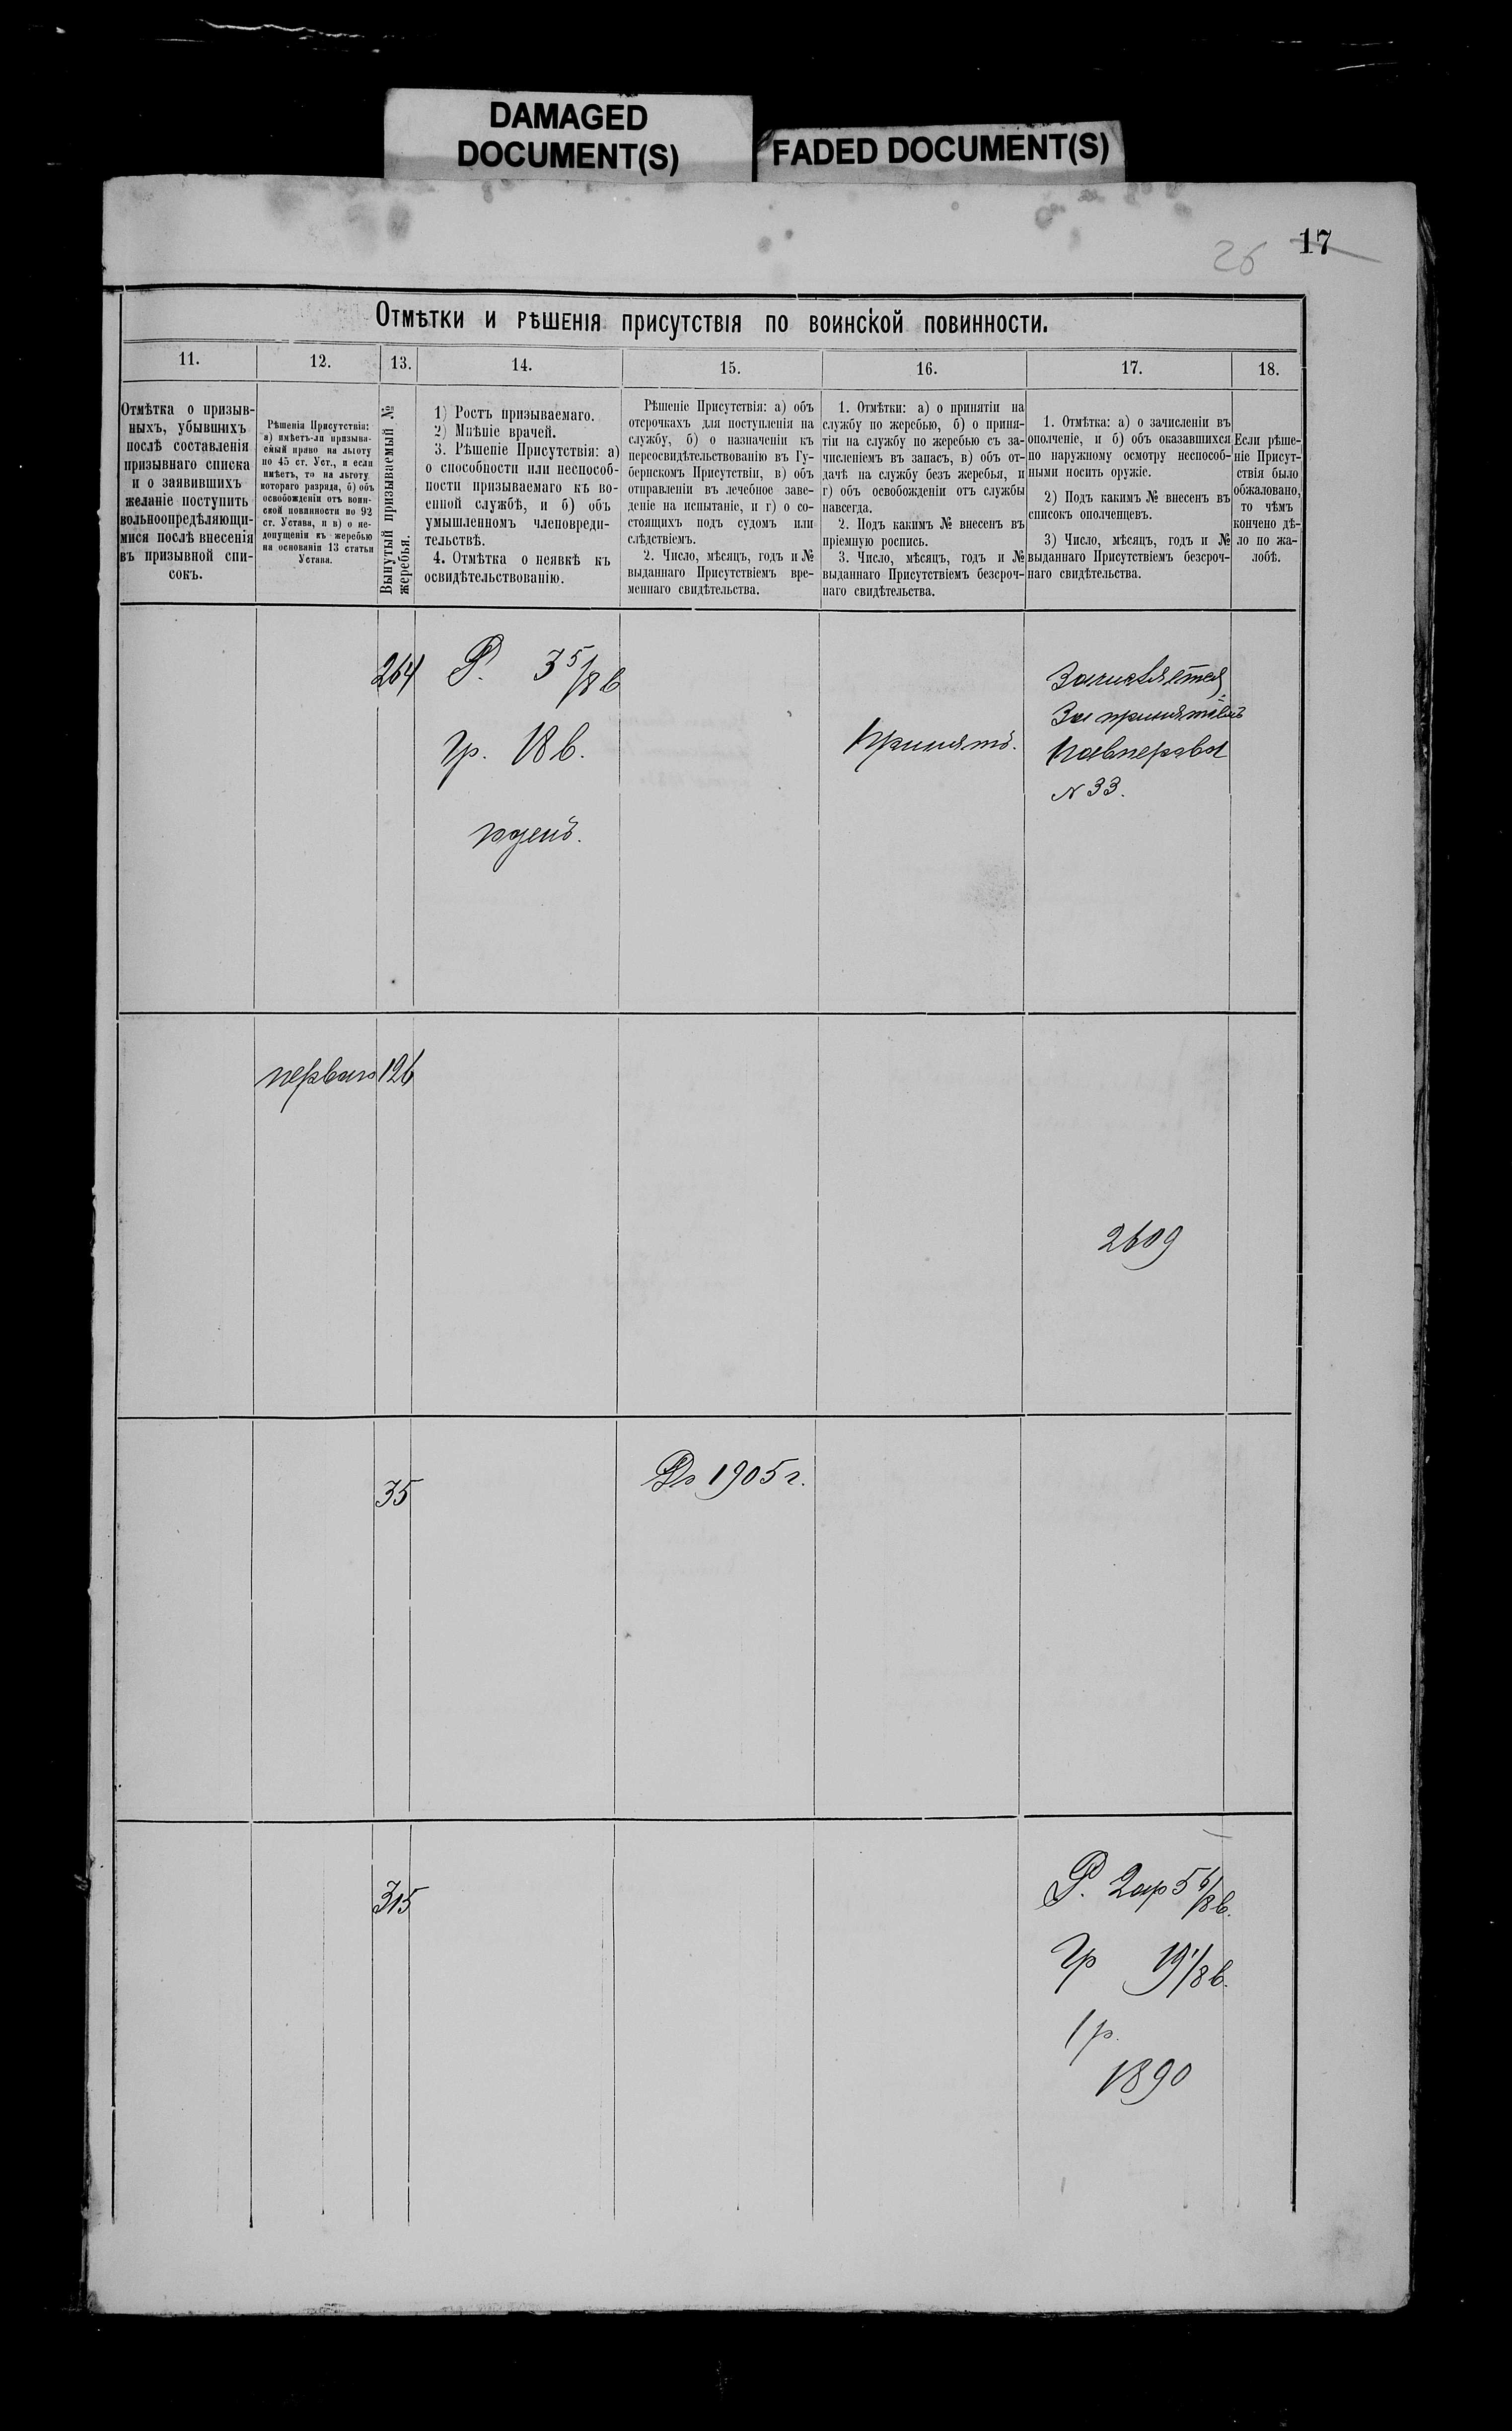 DAMAGED
DOCUMENT(S)
FADED DOCUMENT(S)
26 17
Отмѣтки и рѣшенія присутствія по воинской повинности.
11.
12.
13.
14.
15.
16.
17.
18.
Отмѣтка о призыв-
ныхъ, убывшихъ
послѣ составленія
призывнаго списка
и о заявившихъ
желаніе поступить
вольноопредѣляющи-
мися послѣ внесенія
въ призывной спи-
сокъ.
Рѣшенія Присутствія:
а) имѣетъ-ли призыва-
емый право на льготу
по 45 ст. Уст., и если
имѣетъ, то на льготу
котораго разряда, б) объ
освобожденіи отъ воин-
ской повинности по 92
ст. Устава, и в) о не-
допущеніи къ жеребью
на основаніи 13 статьи
Устава.
Вынутый призываемый №
жеребья.
1) Ростъ призываемаго.
2) Мнѣніе врачей.
3. Рѣшеніе Присутствія: а)
о способности или неспособ-
ности призываемаго къ во-
енной службѣ, и б) объ
умышленномъ членовреди-
тельствѣ.
4. Отмѣтка о неявкѣ къ
освидѣтельствованію.
Рѣшеніе Присутствія: а) объ
отсрочкахъ для поступленія на
службу, б) о назначеніи къ
переосвидѣтельствованію въ Гу-
бернскомъ Присутствіи, в) объ
отправленіи въ лечебное заве-
деніе на испытаніе, и г) о со-
стоящихъ подъ судомъ или
слѣдствіемъ.
2. Число, мѣсяцъ, годъ и №
выданнаго Присутствіемъ вре-
меннаго свидѣтельства.
1. Отмѣтки: а) о принятіи на
службу по жеребью, б) о приня-
тіи на службу по жеребью съ за-
численіемъ въ запасъ, в) объ от-
дачѣ на службу безъ жеребья, и
г) объ освобожденіи отъ службы
навсегда.
2. Подъ какимъ № внесенъ въ
пріемную роспись.
3. Число, мѣсяцъ, годъ и №
выданнаго Присутствіемъ безсроч-
наго свидѣтельства.
1. Отмѣтка: а) о зачисленіи въ
ополченіе, и б) объ оказавшихся
по наружному осмотру неспособ-
ными носить оружіе.
2) Подъ какимъ № внесенъ въ
списокъ ополченцевъ.
3) Число, мѣсяцъ, годъ и №
выданнаго Присутствіемъ безсроч-
наго свидѣтельства.
Если рѣше-
ніе Присут-
ствія было
обжаловано,
то чѣмъ
кончено дѣ-
ло по жа-
лобѣ.
264
Р. 3 5/8 в
гр. 18 в.
годенъ.
Принятъ.
Зачисляется
За принятіемъ
N 33.
перваго 126
2609
35
До 1905 г.
315
Р. 2 ар 5 6/8 в.
гр 19 1/8 в.
1 р.
1890